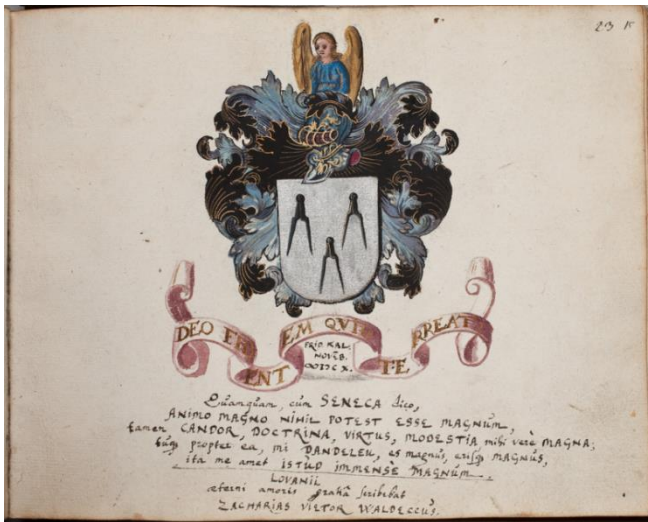 23
DEO ENT EM QVI TE RREAT
PRID KAL.
NOVEB.
Quamquam, cum SENECA dico,
ANIMO MAGNO NIHIL POTEST ESSE MAGNUM,
tamen CANDOR, DOCTRINA, VIRTUS, MODESTIA mihi verè MAGNA;
tuq; propter ea, mi DANDELEU, es magnus, erisq; MAGNUS,
ita me amet ISTUD IMMENSE MAGNUM.
LOVANII
æterni amoris gratiâ scribebat
ZACHARIAS VIETOR WALDECCUS.